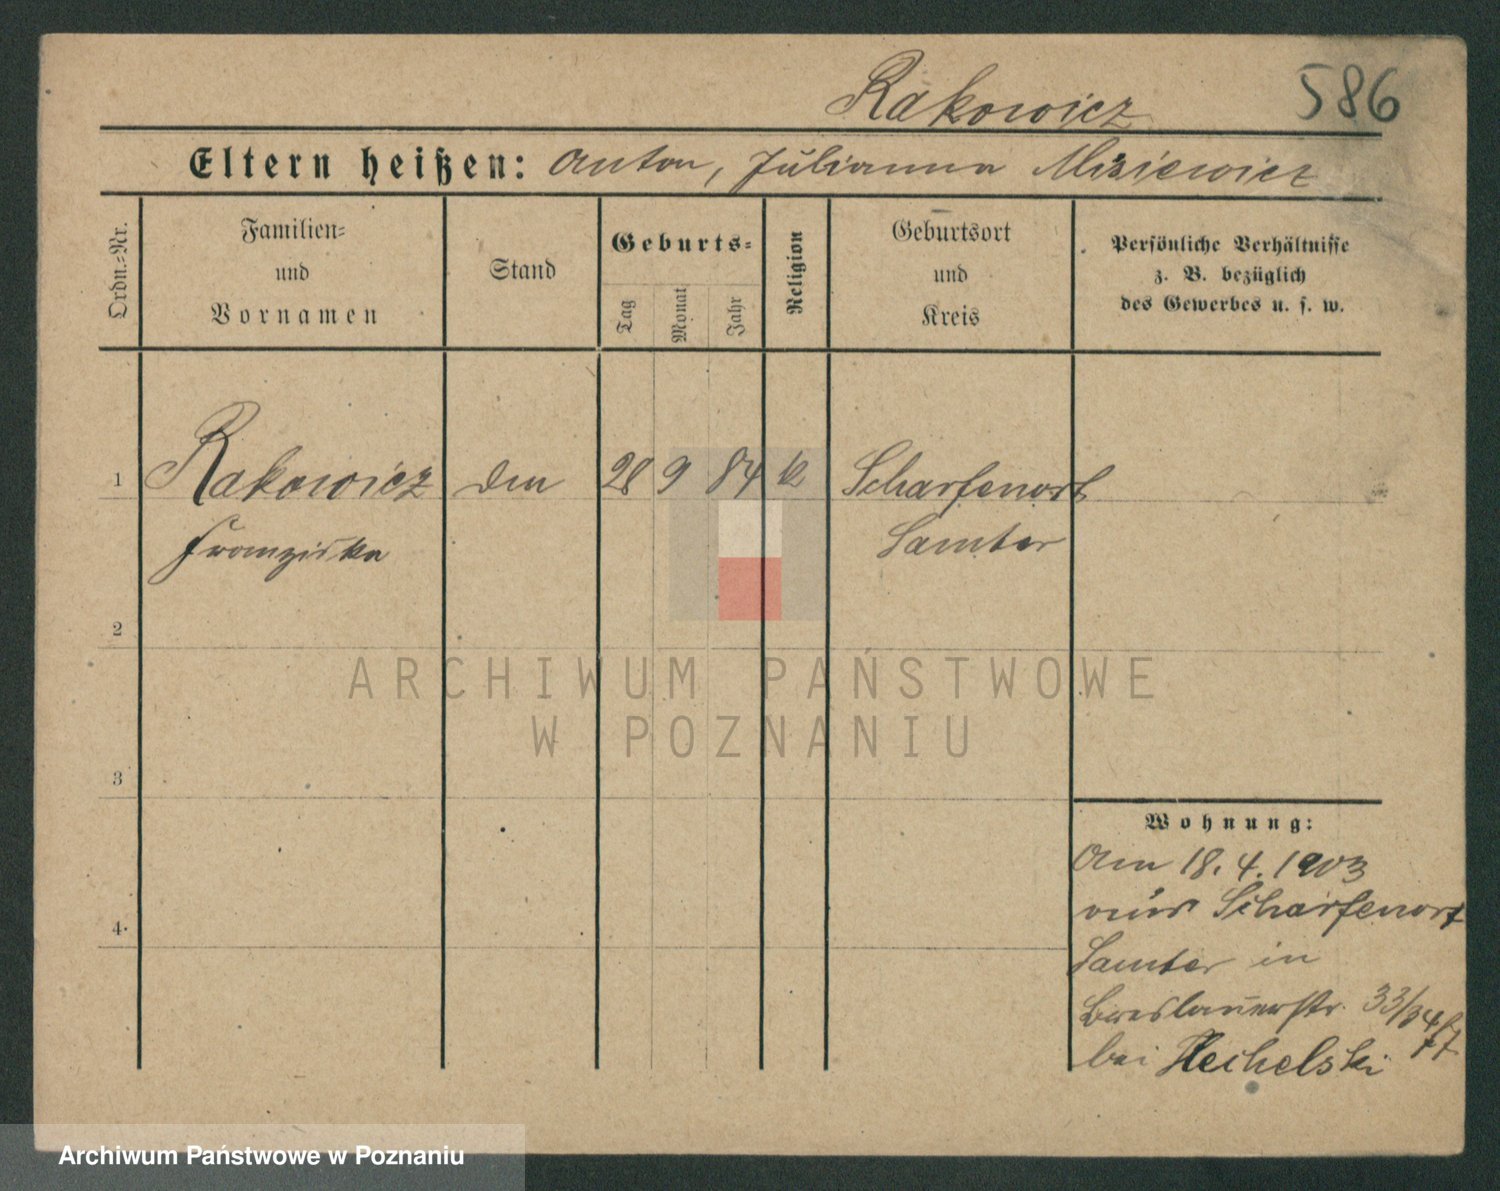 Rakowicz
586
Eltern heißen: Anton, Julianna Misiewicz
Ordn.=Nr.
Familien=
und
Vornamen
Stand
Geburts=
Tag
Monat
Jahr
Religion
Geburtsort
und
Kreis
Persönliche Verhältnisse
z. B. bezüglich
des Gewerbes u. s. w.
1 Rakowicz 28 9 84 k Scharfenort
Franziska Samter
2
ARCHIWUM PAŃSTWOWE
W POZNANIU
3
Wohnung:
Am 18. 4. 1903
aus Scharfenort
4.
Samter in
Breslauerstr. 33/34
bei Hechelski
Archiwum Państwowe w Poznaniu